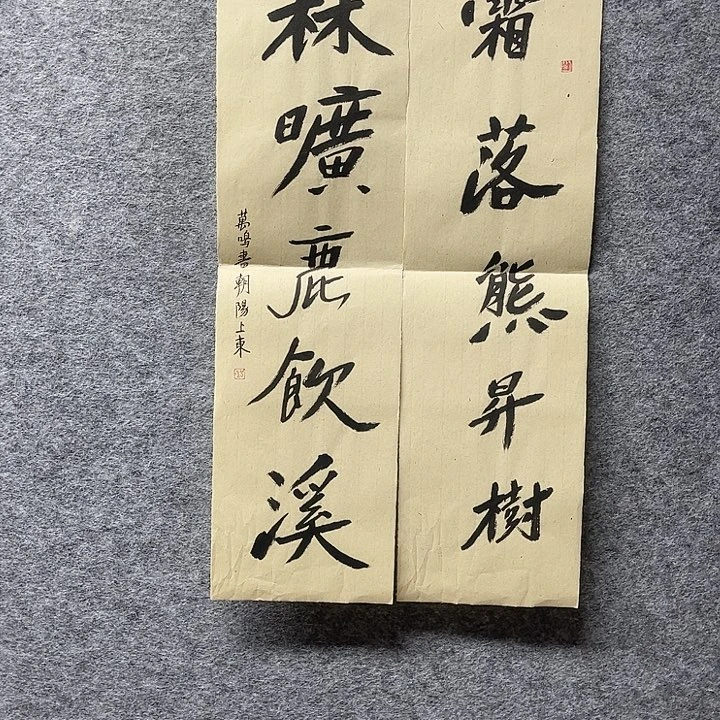 霜落熊昇樹
林曠鹿飲溪
萬鳴書朝陽上東